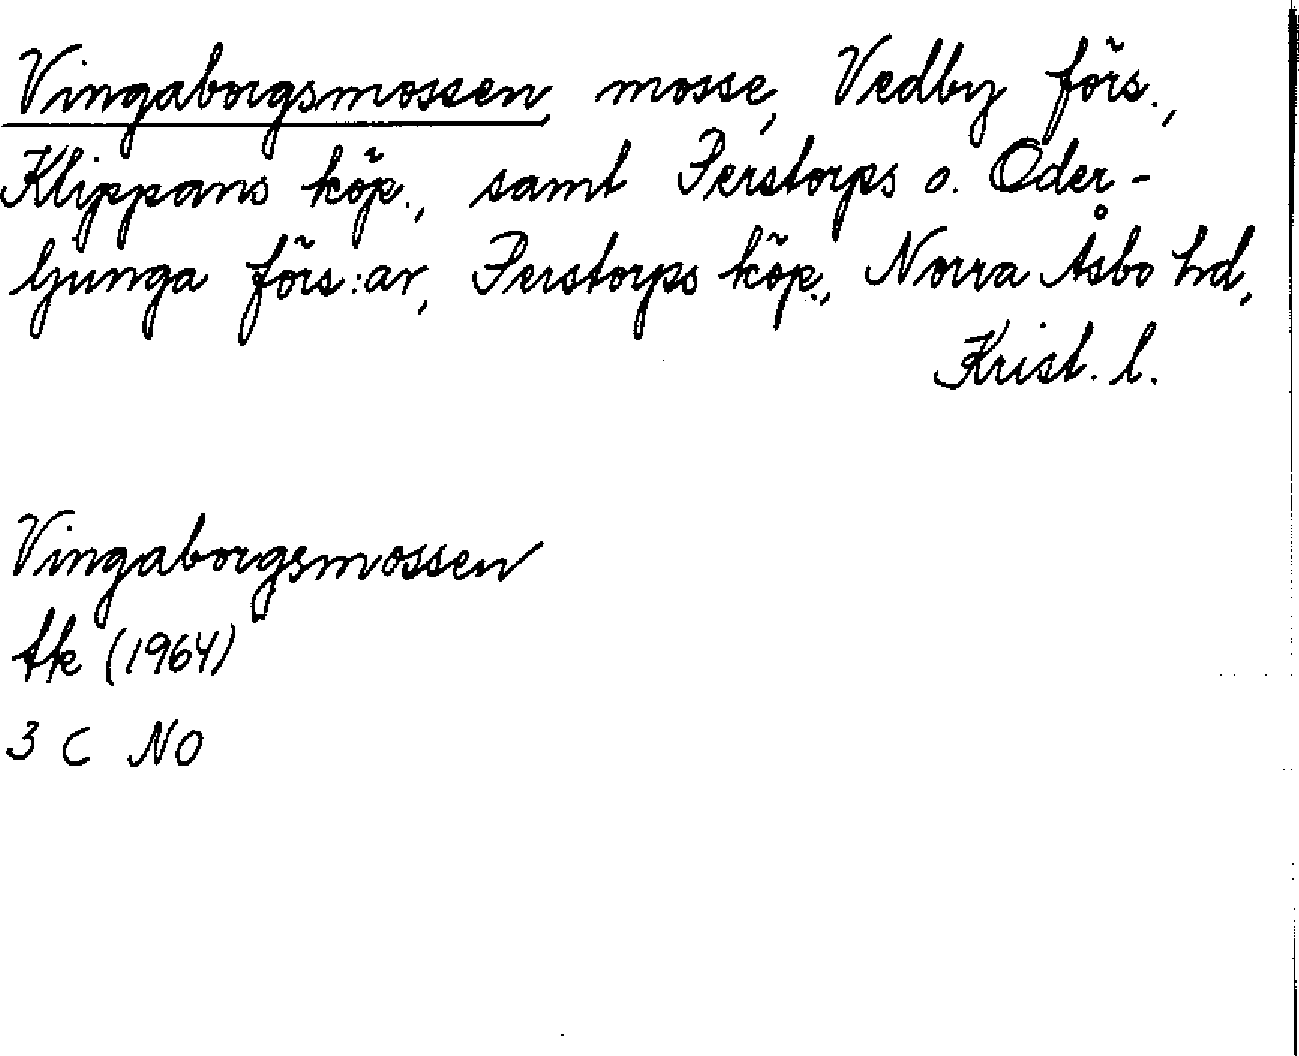 Vingaborgsmossen, mosse, Vedby förs.,
Klippans köp., samt Perstorps o. Oder-
ljunga förs:ar, Perstorps köp., Norra Åsbo hd,
Krist. l.
Vingaborgsmossen
tk (1964)
3 C NO